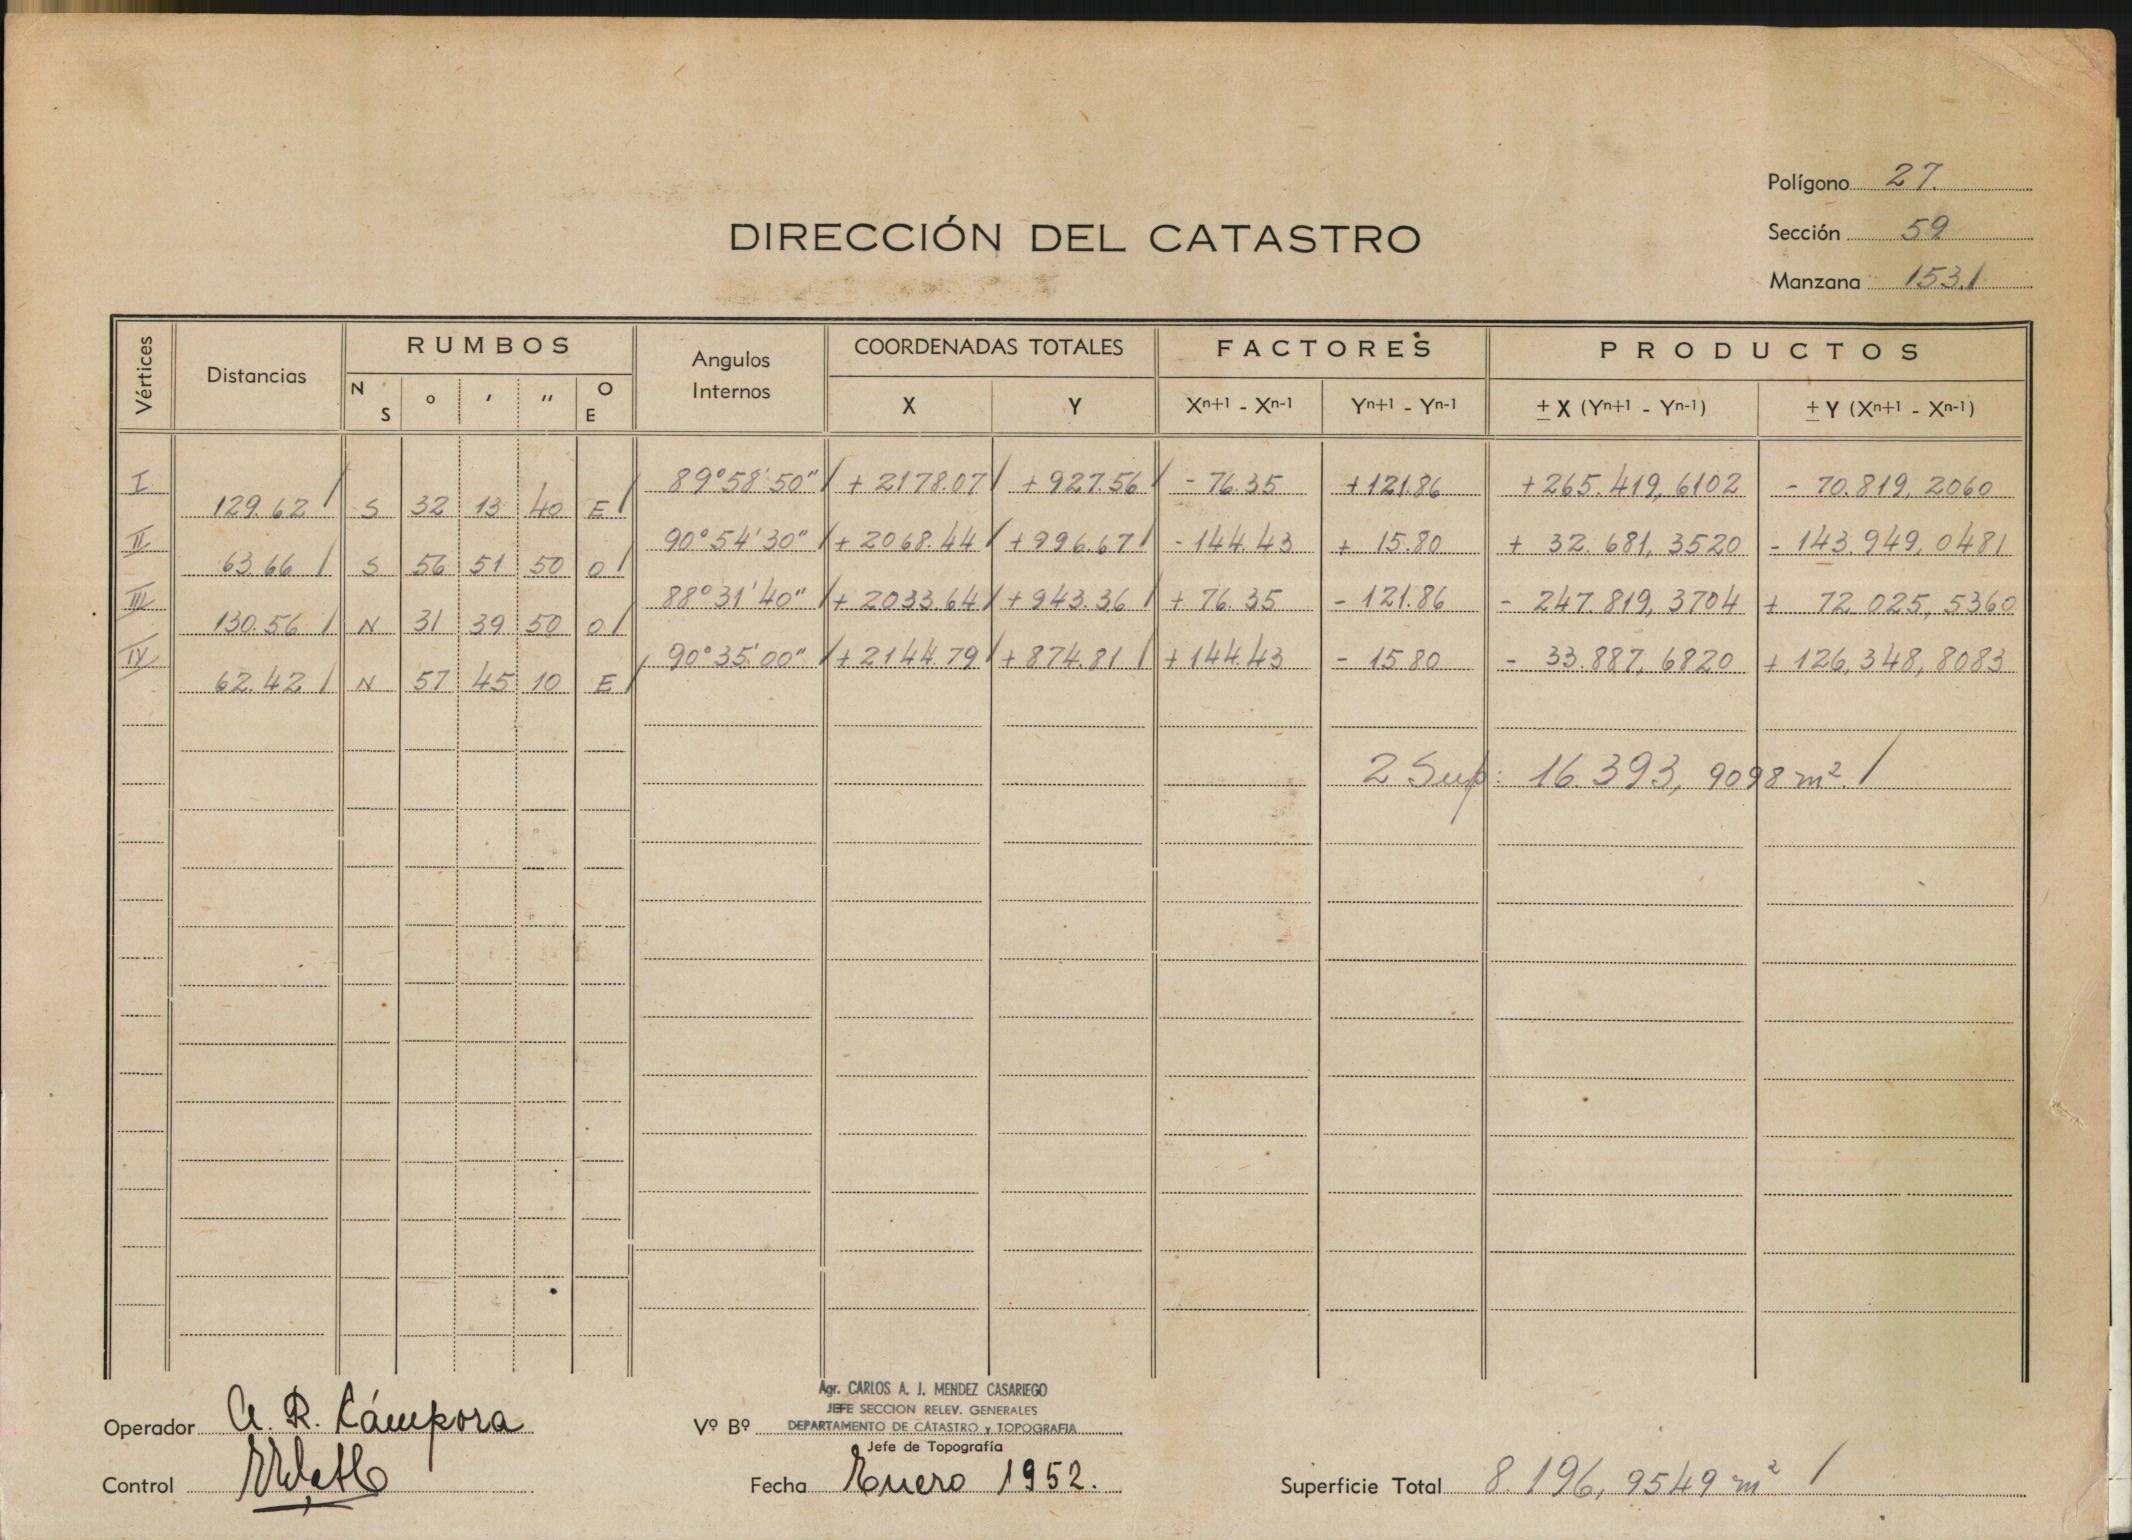 Polígono 27.
DIRECCIÓN DEL CATASTRO
Sección 59
Manzana 153.1
Vértices
Distancias
RUMBOS
N S ° ′ ″ O E
Angulos Internos
COORDENADAS TOTALES
X Y
FACTORES
Xn+1 - Xn-1 Yn+1 - Yn-1
PRODUCTOS
± X (Yn+1 - Yn-1) ± Y (Xn+1 - Xn-1)
I 89°58'50" + 2178.07 + 927.56 - 76.35 + 121.86 + 265.419,6102 - 70.819,2060
129.62 S 32 13 40 E
II 90°54'30" + 2068.44 + 996.67 - 144.43 + 15.80 + 32.681,3520 - 143.949,0481
63.66 S 56 51 50 O
III 88°31'40" + 2033.64 + 943.36 + 76.35 - 121.86 - 247.819,3704 + 72.025,5360
130.56 N 31 39 50 O
IV 90°35'00" + 2144.79 + 874.81 + 144.43 - 15.80 - 33.887,6820 + 126,348,8083
62.42 N 57 45 10 E
2 Sup: 16.393,9098 m².
Agr. CARLOS A. J. MENDEZ CASARIEGO
JEFE SECCION RELEV. GENERALES
DEPARTAMENTO DE CATASTRO y TOPOGRAFIA
Operador A. R. Cámpora Vº Bº
Jefe de Topografía
Control Fecha Enero 1952. Superficie Total 8.196,9549 m²